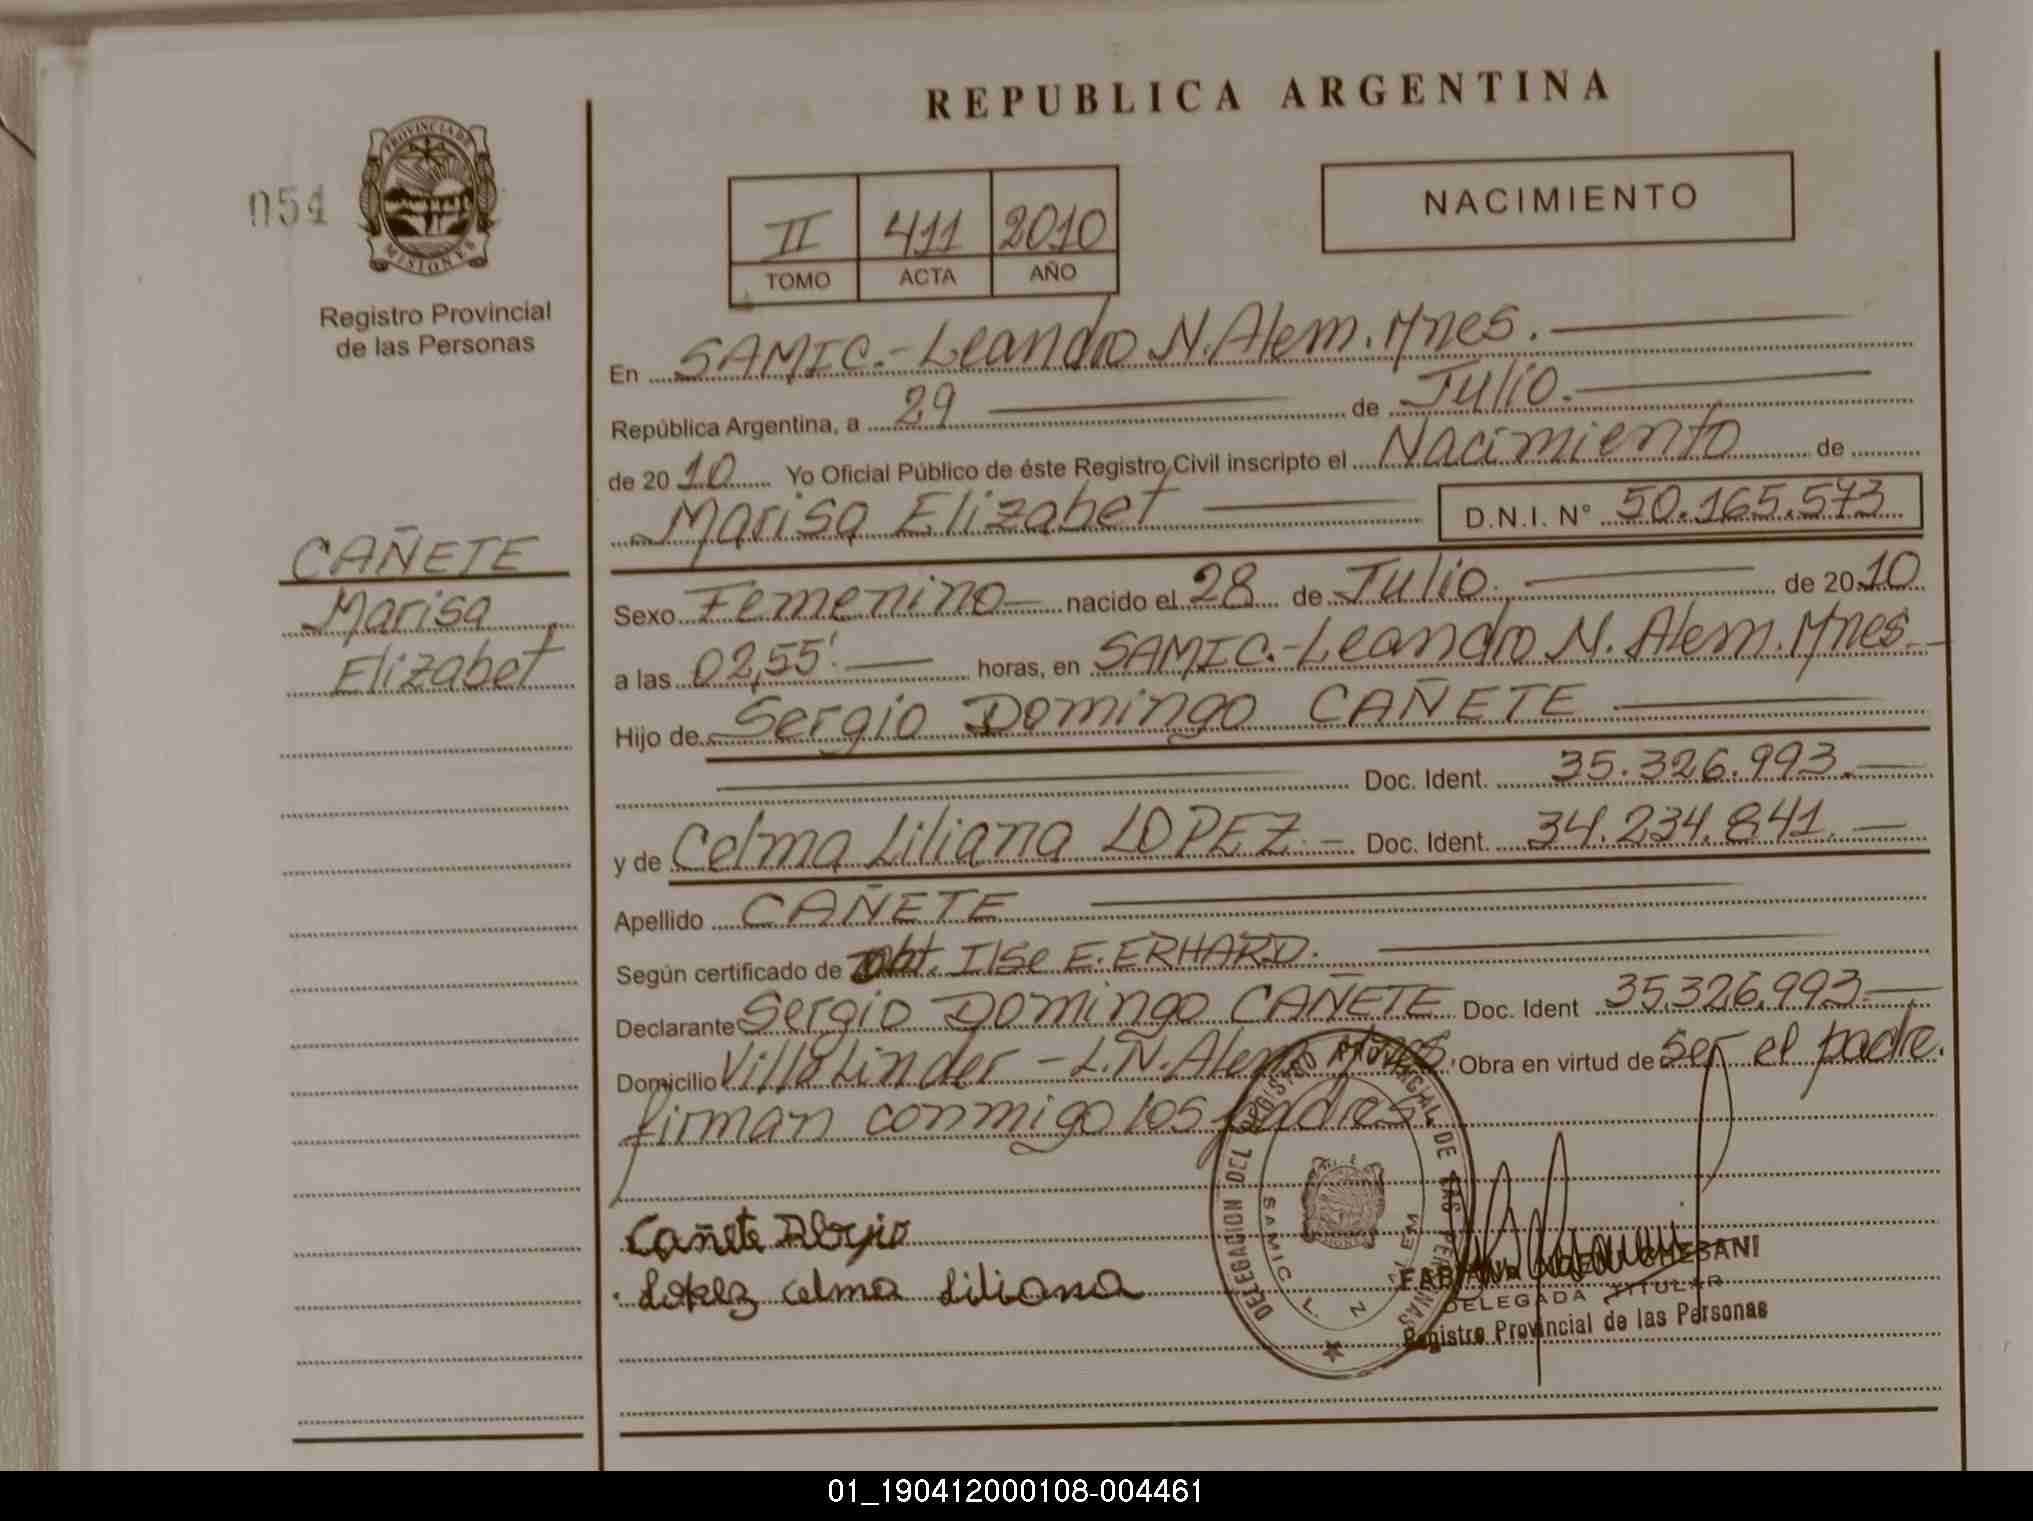 REPUBLICA ARGENTINA
054
PROVINCIA DE
MISIONES
Registro Provincial
de las Personas
II 411 2010
TOMO ACTA AÑO
NACIMIENTO
En SAMIC.-Leandro N. Alem. Mnes.
República Argentina, a 29 de Julio.
de 20 10 Yo Oficial Público de éste Registro Civil inscripto el Nacimiento de
Marisa Elizabet D.N.I. Nº 50.165.573
CAÑETE
Marisa
Elizabet
Sexo Femenino nacido el 28 de Julio. de 20 10
a las 02,55'. horas, en SAMIC.-Leandro N. Alem. Mnes.
Hijo de Sergio Domingo CAÑETE
Doc. Ident. 35.326.993.
y de Celma Liliana LOPEZ. Doc. Ident. 34.234.841.
Apellido CAÑETE
Según certificado de Obt. Ilse E. ERHARD.
Declarante Sergio Domingo CAÑETE Doc. Ident 35.326.993.
Domicilio Villa Linder - L.N. Alem Mnes. Obra en virtud de ser el padre.
firman conmigo los padres.
Cañete
Lopez celma Liliana
DELEGACION DEL REGISTRO PROVINCIAL DE LAS PERSONAS
SAMIC L. N. ALEM
DELEGADA TITULAR
Registro Provincial de las Personas
01_190412000108-004461